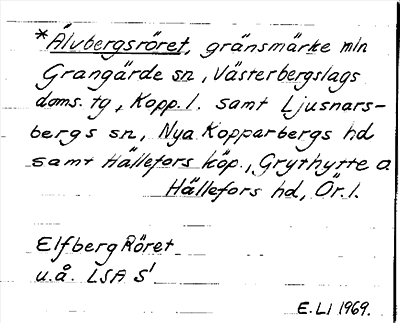 *Älvbergsröret, gränsmärke mln
Grangärde sn, Västerbergslags
doms. tg, Kopp. l. samt Ljusnars-
bergs sn, Nya Kopparbergs hd
samt Hällefors köp., Grythytte o
Hällefors hd, Ör. l.
Elfberg Röret
u.å. LSA S1
E. LI 1969.